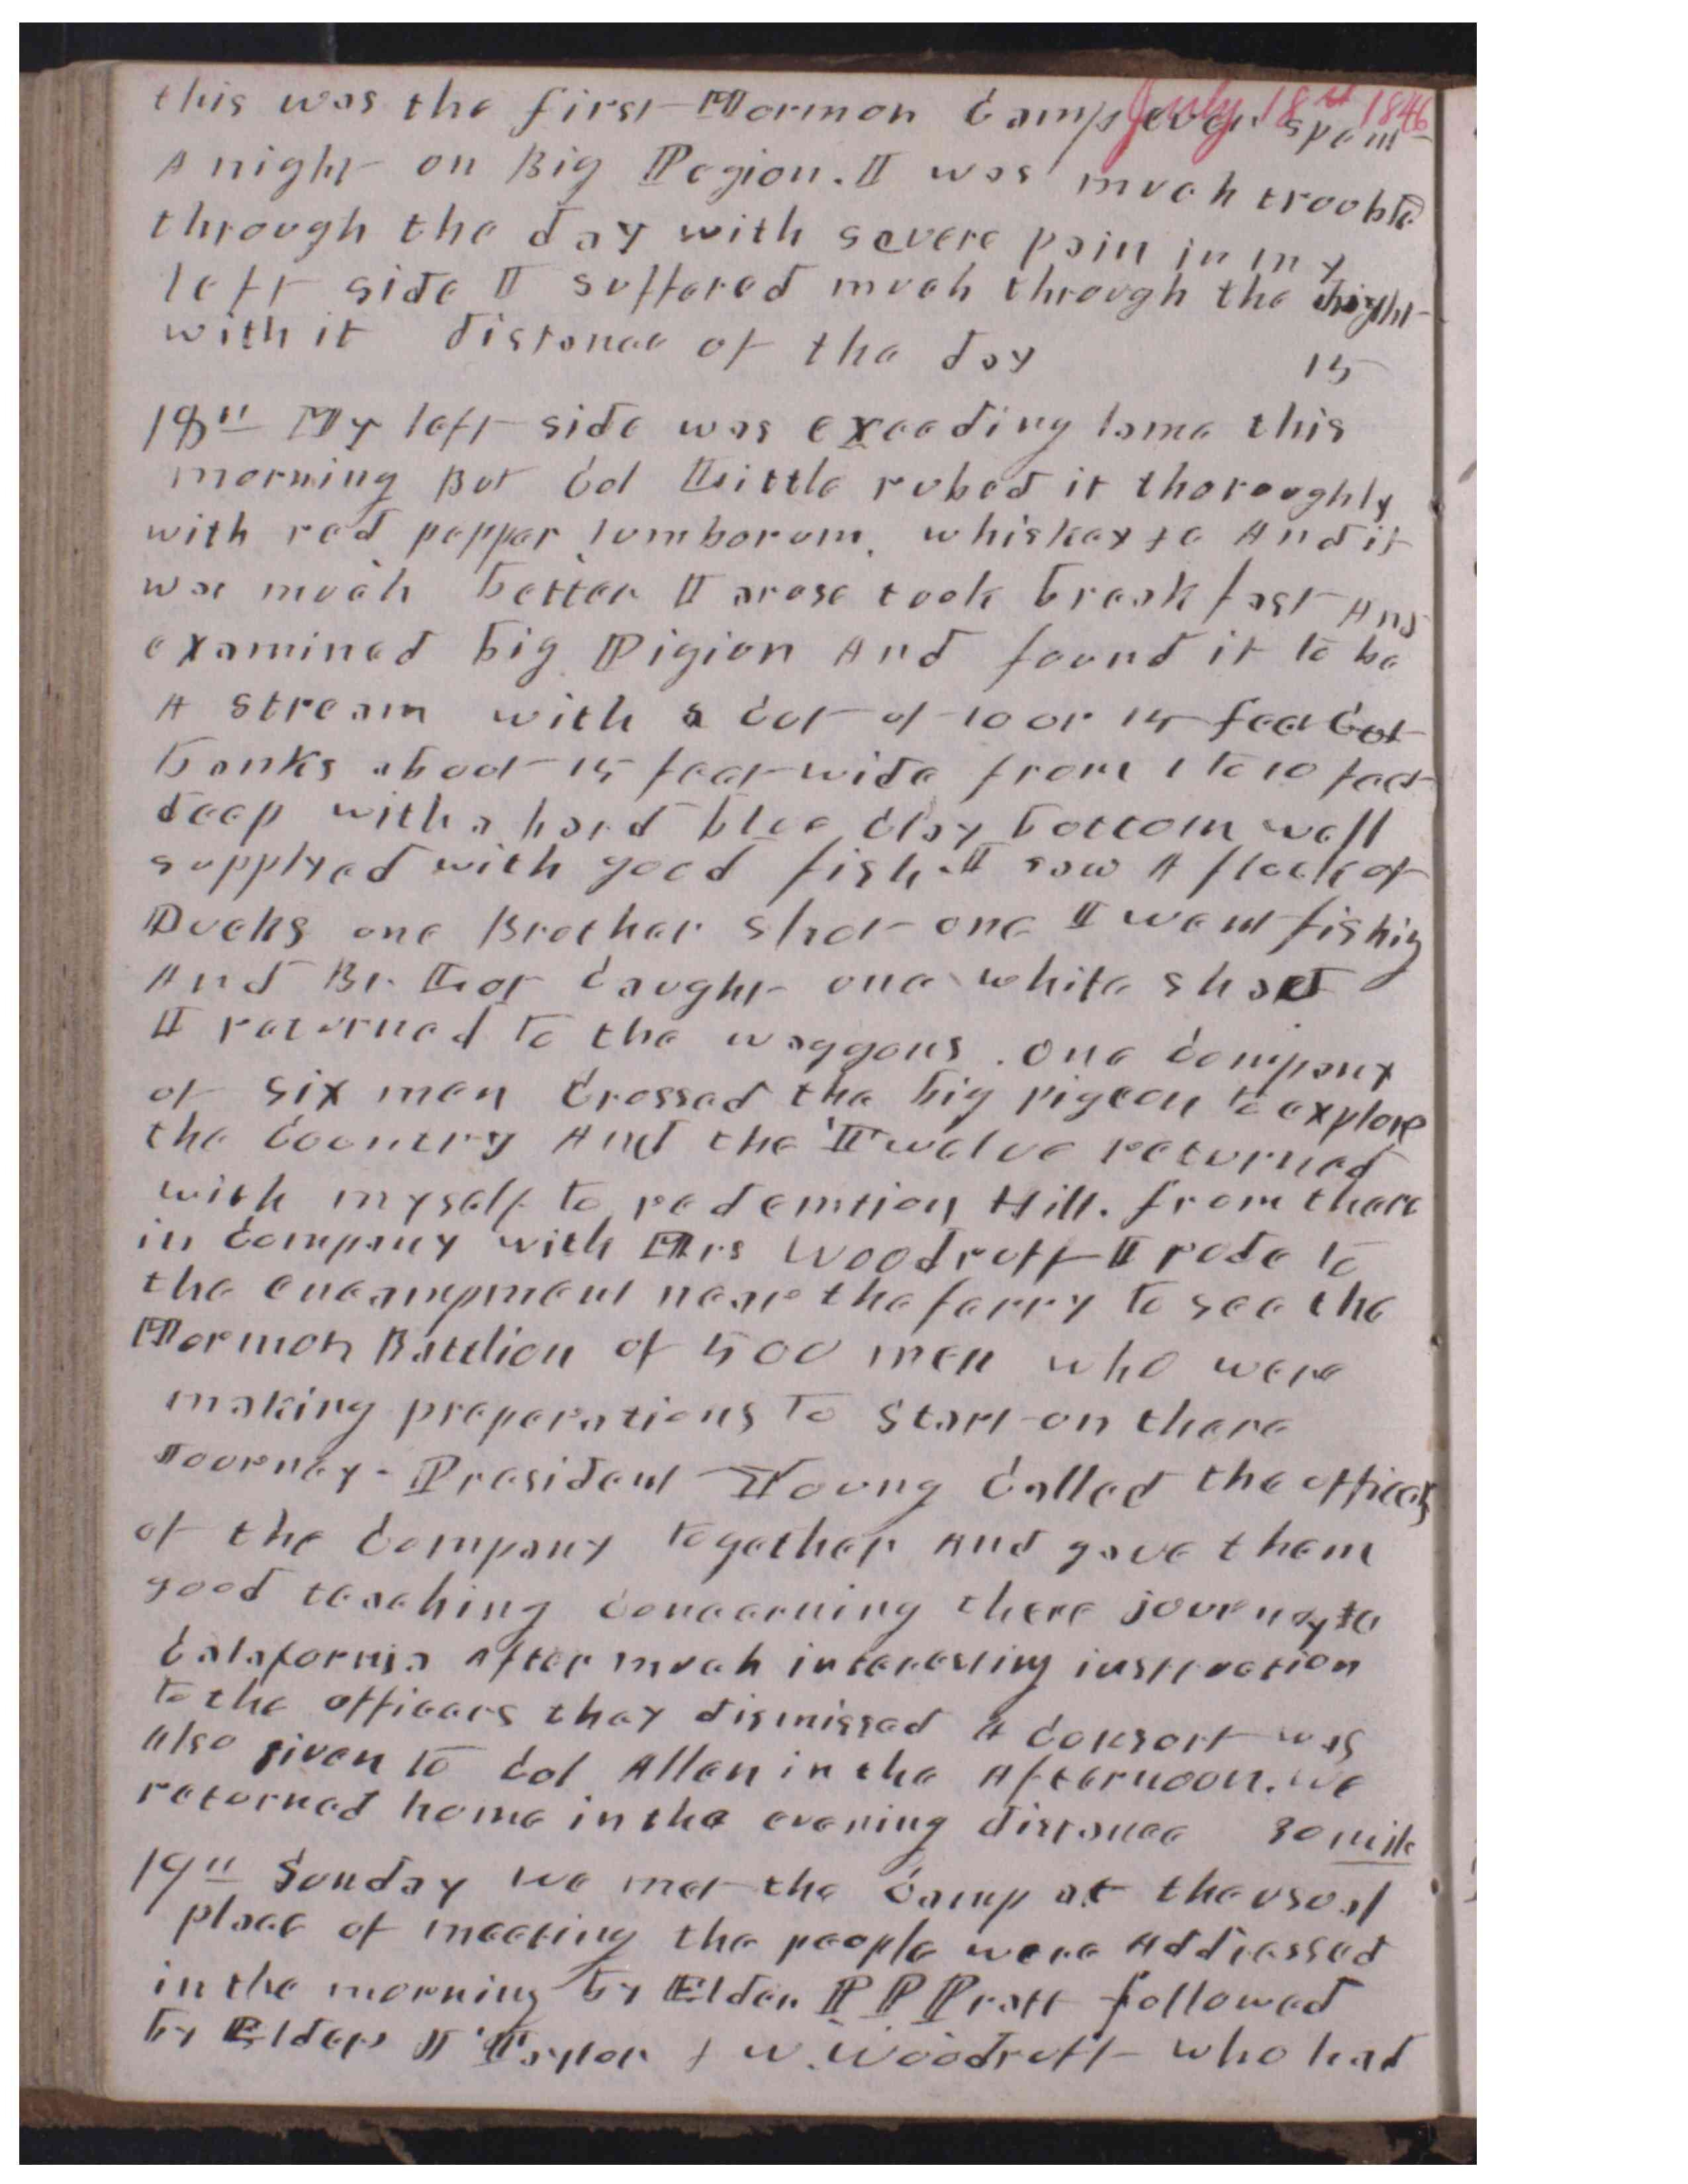 July 18th 1846
this was the first Mormon Camp ever spent
A night on Big Pegion. I was much trouble
through the day with severe pain in my
left side I suffered much through the night
with it distance of the day 15
18th My left side was exceeding lame this
morning But Col Little rubed it thoroughly
with red pepper, whiskey &c And it
was much better I arose took breakfast And
examined big Pigion And found it to be
A stream with a cut of 10 or 15 feet Cut
banks about 15 feet wide from 1 to 10 feet
deep with a hard blue clay bottom well
supplyed with good fish. I saw A flock of
Ducks one Brother shot one I went fishing
And Br. Lot Caught one white shad
I returned to the waggons. One Company
of six men Crossed the big pigeon to explore
the Country And the Twelve returned
with myself to redemtion Hill. from there
in Company with Mrs Woodruff I rode to
the encampment near the ferry to see the
Mormon Battlion of 500 men who were
making preperations to Start on there
Journey. President Young Called the officers
of the Company together And gave them
good teaching concerning there journey to
Calafornia After much interesting instruction
to the officers they dismissed A Consort was
also given to Col Allen in the Afternoon. we
returned home in the evening distance 30 mile
19th Sunday we met the Camp at the usual
place of meeting the people were Addressed
in the morning by Elder P P Pratt followed
by Elders J Taylor & W. Woodruff who had